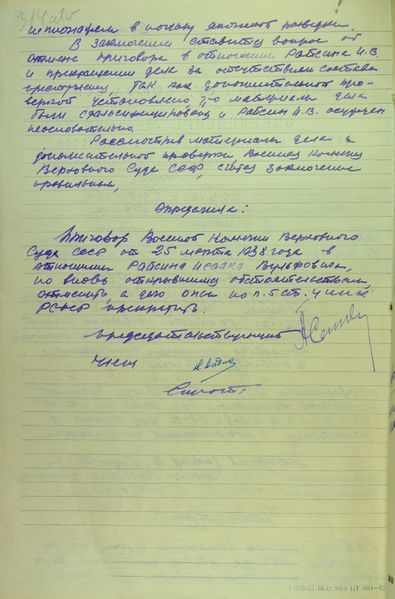 шпионажем в пользу японской разведки.
В заключении ставится вопрос об
отмене приговора в отношении Рабсина И.В.
и прекращении дела за отсутствием состава
преступления, так как дополнительной про-
веркой установлено, что материалы дела
были сфальсифицированы и Рабсин И.В. осужден
неосновательно.
Рассмотрив материалы дела и
дополнительной проверки Военная Коллегия
Верховного Суда СССР, считая заключение
правильным,
Определила:
Приговор Военной Коллегии Верховного
Суда СССР от 25 марта 1938 года в
отношении Рабсина Исаака Вульфовича,
по вновь открывшимся обстоятельствам,
отменить и дело о нем по п.5 ст. 4 УПК
РСФСР прекратить.
Председательствующий
Члены